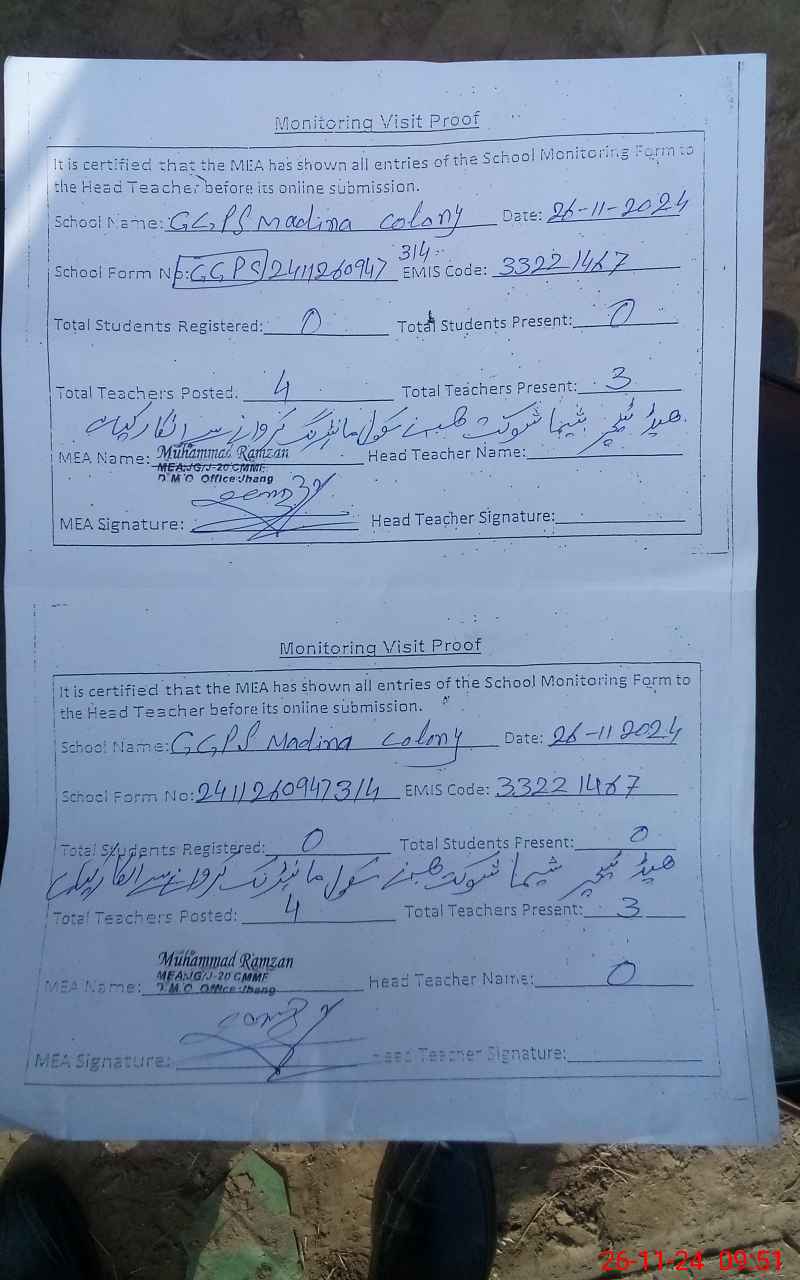 Monitoring Visit Proof
It is certified that the MEA has shown all entries of the School Monitoring Form to
the Head Teacher before its online submission.
School Name: GGPS Madina Colony Date: 26-11-2024
314
School Form No: GGPS 2411260947 EMIS Code: 33221467
Total Students Registered: 0 Total Students Present: 0
Total Teachers Posted. 4 Total Teachers Present: 3
ہیڈ ٹیچر شیما شوکت صاحبہ نے سکول مانیٹرنگ کروانے سے انکار کیا۔
MEA Name: Muhammad Ramzan Head Teacher Name:
MEA:JG/J-20 CMMF
D M O Office:Jhang
MEA Signature: Head Teacher Signature:
Monitoring Visit Proof
It is certified that the MEA has shown all entries of the School Monitoring Form to
the Head Teacher before its online submission.
School Name: GGPS Madina Colony Date: 26-11 2024
School Form No: 2411260947314 EMIS Code: 33221467
Total Students Registered: 0 Total Students Present: 0
ہیڈ ٹیچر شیما شوکت صاحبہ نے سکول مانیٹرنگ کروانے سے انکار کیا
Total Teachers Posted: 4 Total Teachers Present: 3
Muhammad Ramzan
MEA:JG/J-20 CMMF
MEA Name: D M O Office:Jhang Head Teacher Name: 0
MEA Signature: Head Teacher Signature:
26-11-24 09:51